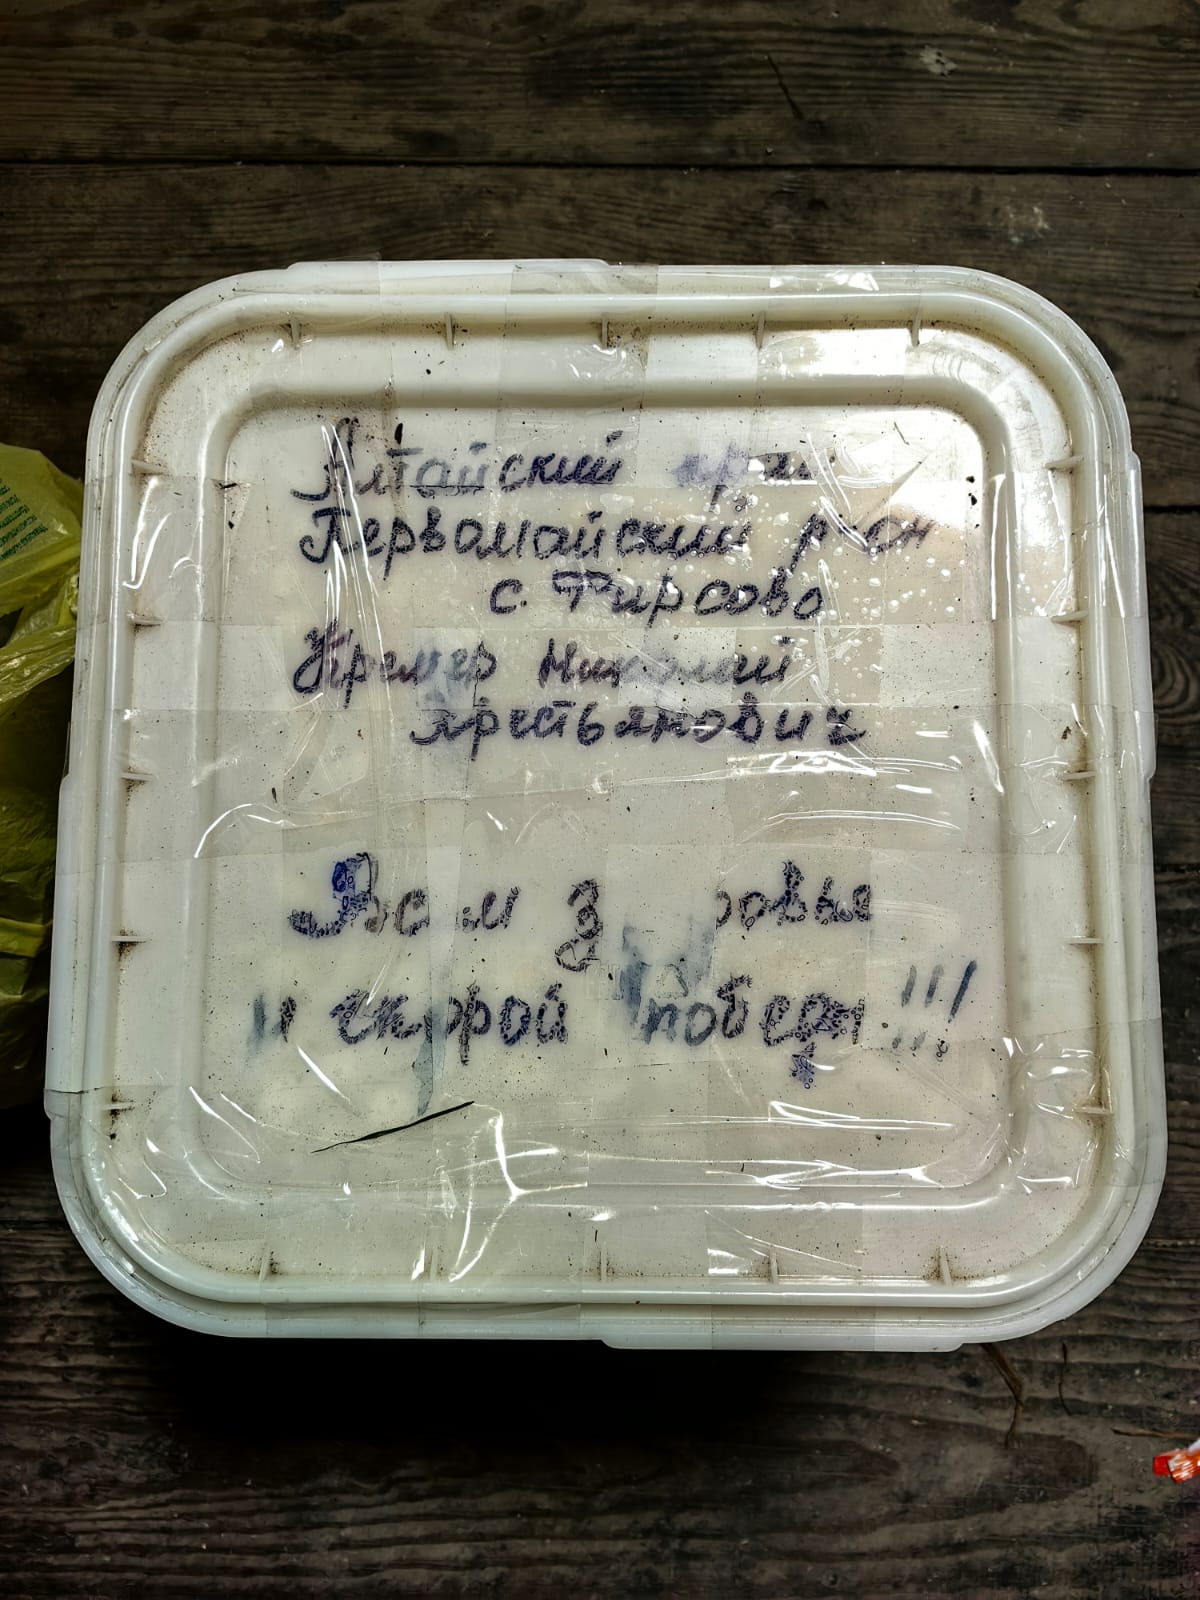 Алтайский край
Первомайский р-он
с. Фирсово
Кремер Николай
Крестьянович
Всем здоровья
и скорой победы!!!